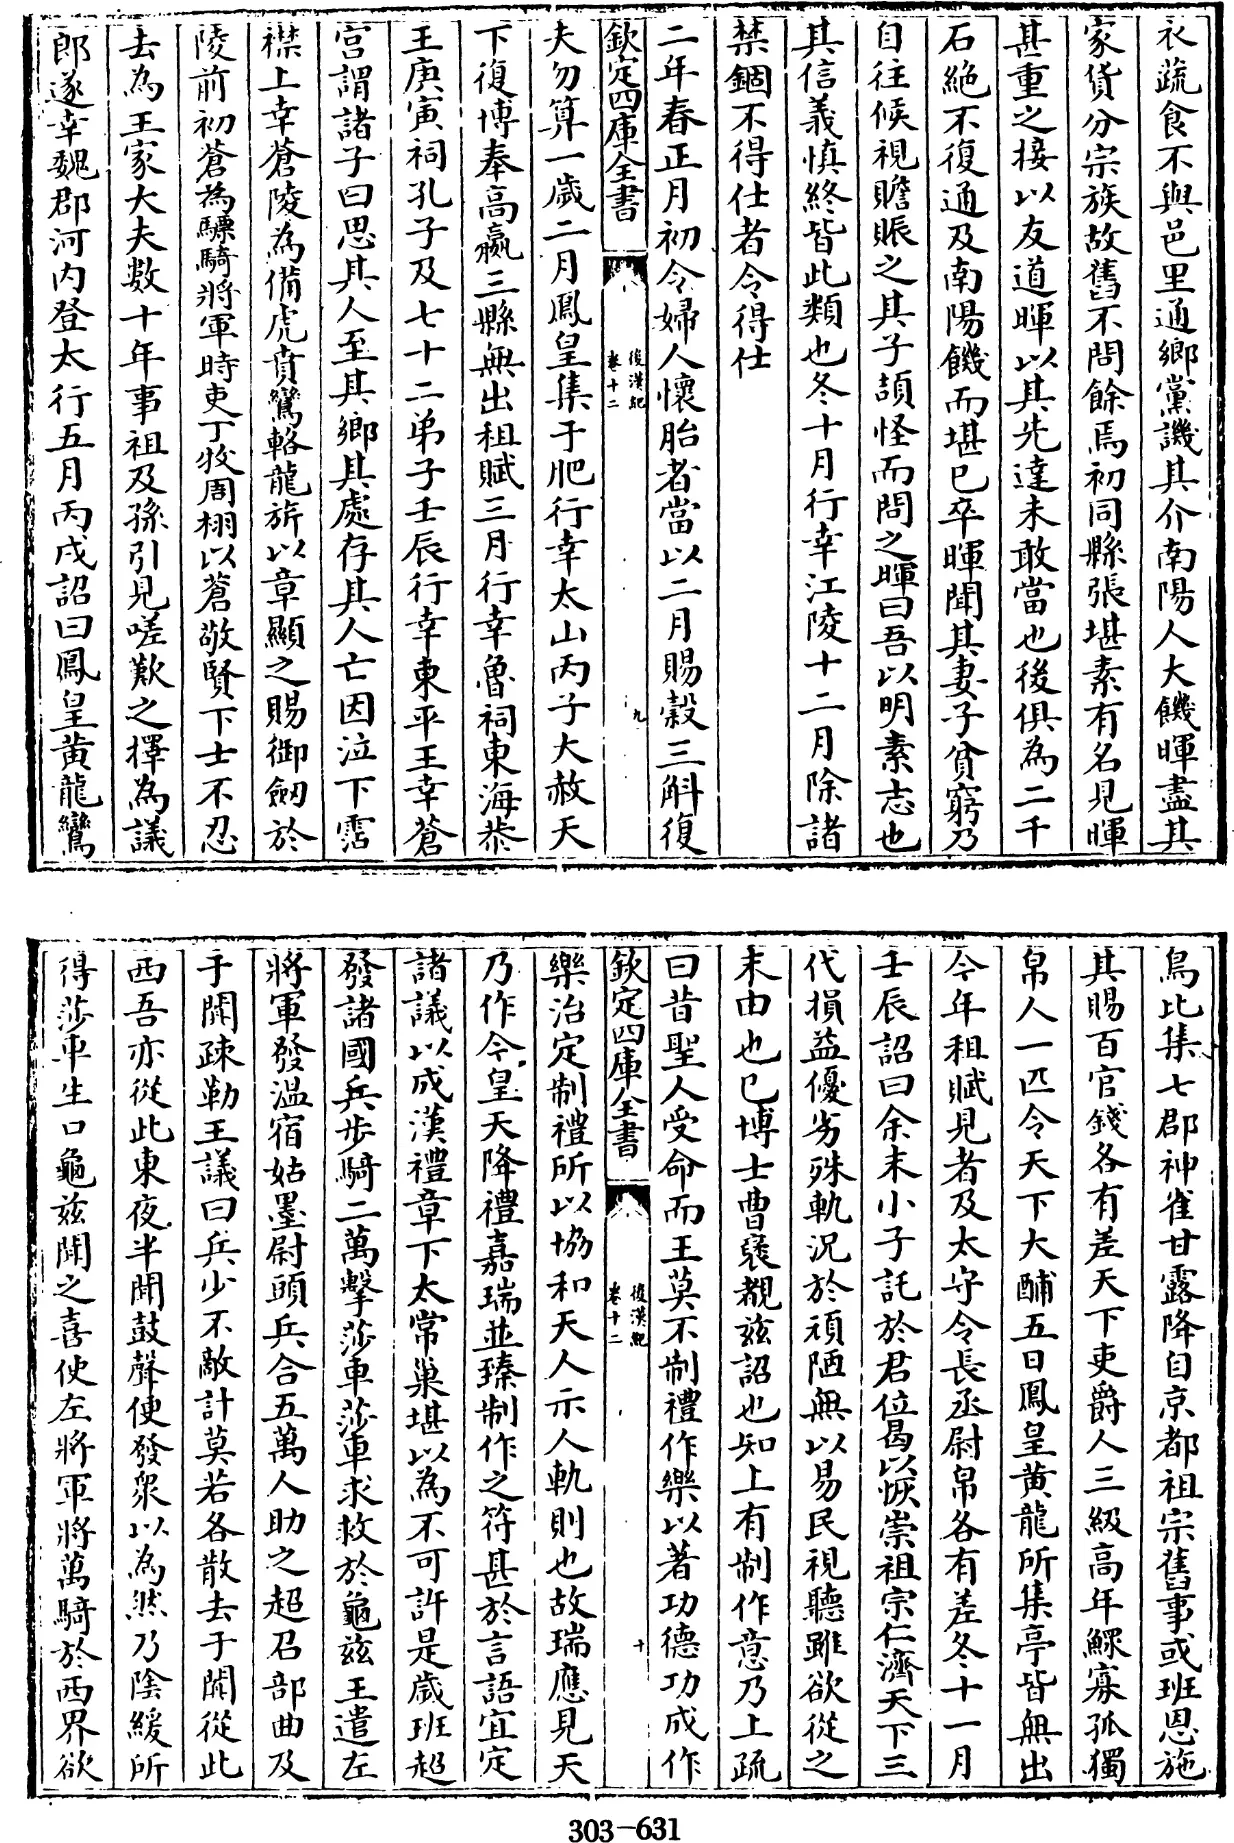 衣蔬食不與邑里通鄉黨譏其介南陽人大饑暉盡其
家貨分宗族故舊不問餘焉初同縣張堪素有名見暉
甚重之接以友道暉以其先達未敢當也後俱為二千
石絶不復通及南陽饑而堪已卒暉聞其妻子貧窮乃
自往候視贍賑之其子頡怪而問之暉曰吾以明素志也
其信義慎終皆此類也冬十月行幸江陵十二月除諸
禁錮不得仕者令得仕
二年春正月初令婦人懷胎者當以二月賜穀三斛復
欽定四庫全書
後漢紀
卷十二
九
夫勿算一歲二月鳳皇集于肥行幸太山丙子大赦天
下復博奉高嬴三縣無出租賦三月行幸魯祠東海恭
王庚寅祠孔子及七十二弟子壬辰行幸東平王幸蒼
宫謂諸子曰思其人至其鄉其處存其人亡因泣下霑
襟上幸蒼陵為備虎賁鸞輅龍旂以章顯之賜御劒於
陵前初蒼為驃騎將軍時吏丁牧周栩以蒼敬賢下士不忍
去為王家大夫數十年事祖及孫引見嗟歎之擇為議
郎遂幸魏郡河内登太行五月丙戌詔曰鳳皇黄龍鸞
鳥比集七郡神雀甘露降自京都祖宗舊事或班恩施
其賜百官錢各有差天下吏爵人三級高年鰥寡孤獨
帛人一匹令天下大酺五日鳳皇黄龍所集亭皆無出
今年租賦見者及太守令長丞尉帛各有差冬十一月
壬辰詔曰余末小子託於君位曷以恢崇祖宗仁濟天下三
代損益優劣殊軌況於頑陋無以易民視聽雖欲從之
末由也已博士曹襃覩兹詔也知上有制作意乃上疏
曰昔聖人受命而王莫不制禮作樂以著功德功成作
欽定四庫全書
後漢紀
卷十二
十
樂治定制禮所以協和天人示人軌則也故瑞應見天
乃作今皇天降禮嘉瑞並臻制作之符甚於言語宜定
諸議以成漢禮章下太常巢堪以為不可許是歲班超
發諸國兵步騎二萬擊莎車莎車求救於龜兹王遣左
將軍發温宿姑墨尉頭兵合五萬人助之超召部曲及
于闐疎勒王議曰兵少不敵計莫若各散去于闐從此
西吾亦從此東夜半聞鼓聲便發衆以為然乃陰緩所
得莎車生口龜兹聞之喜使左將軍將萬騎於西界欲
303-631